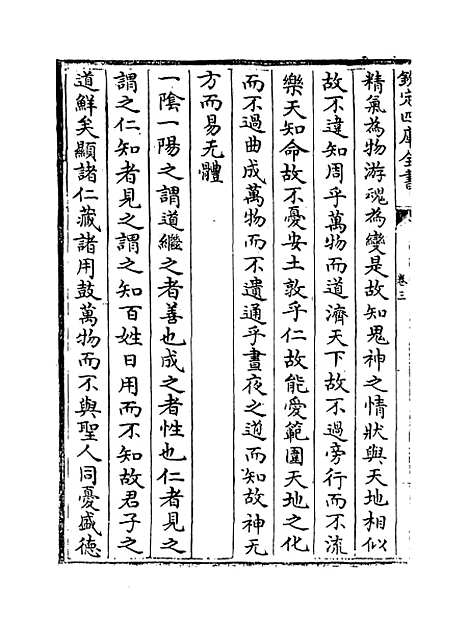 欽定四庫全書
卷三
精氣為物游魂為變是故知鬼神之情狀與天地相似
故不違知周乎萬物而道濟天下故不過旁行而不流
樂天知命故不憂安土敦乎仁故能愛範圍天地之化
而不過曲成萬物而不遺通乎晝夜之道而知故神无
方而易无體
一陰一陽之謂道繼之者善也成之者性也仁者見之
謂之仁知者見之謂之知百姓日用而不知故君子之
道鮮矣顯諸仁藏諸用鼓萬物而不與聖人同憂盛德